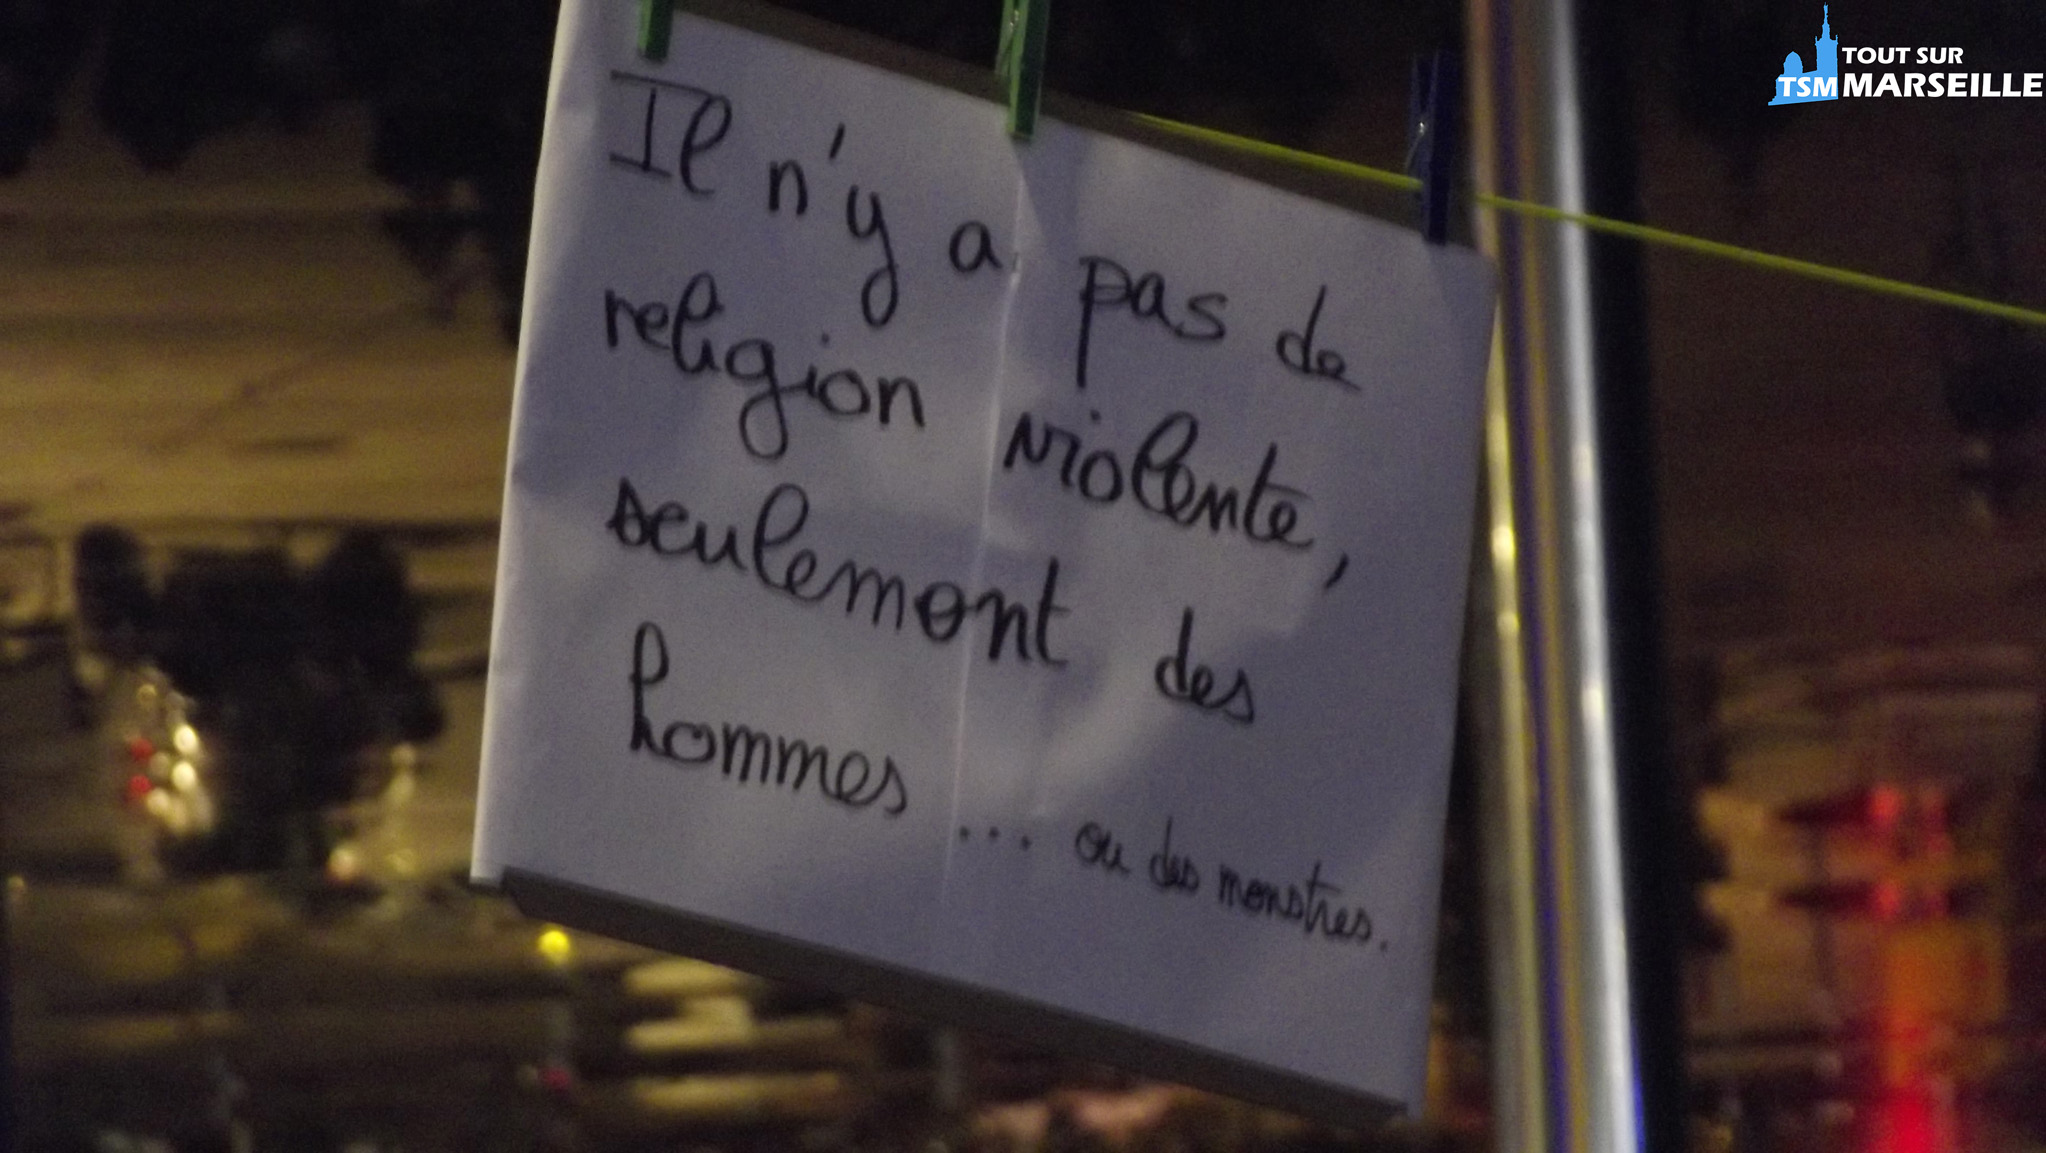 Il n'y a pas de
religion violente,
seulement des
hommes ... ou des monstres.
TOUT SUR
TSM MARSEILLE